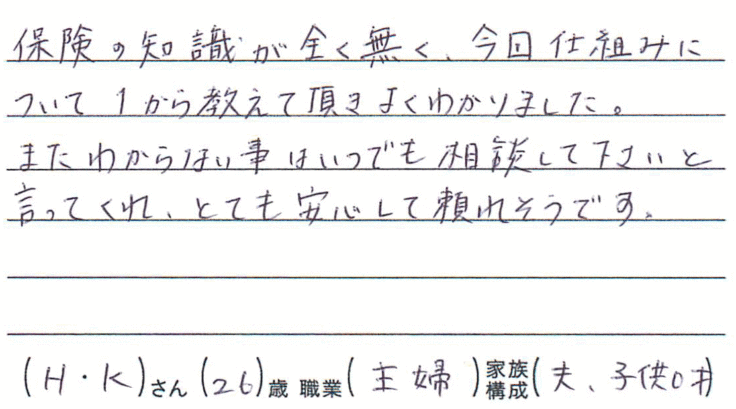 保険の知識が全く無く、今回仕組みに
ついて1から教えて頂きよくわかりました。
またわからない事はいつでも相談して下さいと
言ってくれ、とても安心して頼れそうです。
(H・K)さん(26)歳 職業(主婦)家族構成(夫、子供0才)